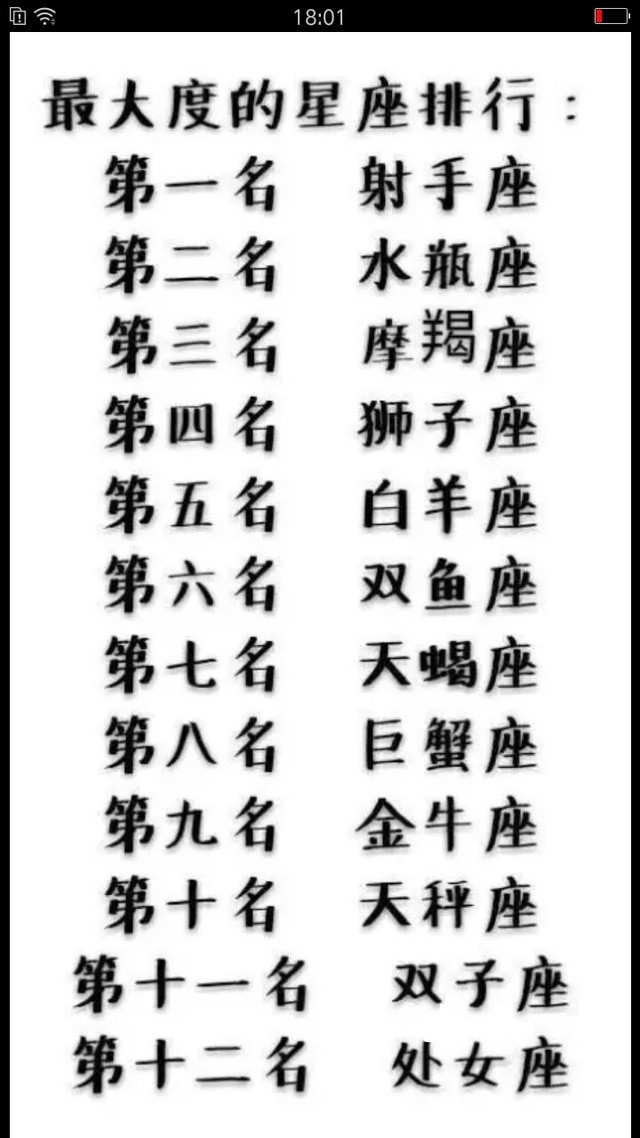 18:01
最大度的星座排行：
第一名 射手座
第二名 水瓶座
第三名 摩羯座
第四名 狮子座
第五名 白羊座
第六名 双鱼座
第七名 天蝎座
第八名 巨蟹座
第九名 金牛座
第十名 天秤座
第十一名 双子座
第十二名 处女座